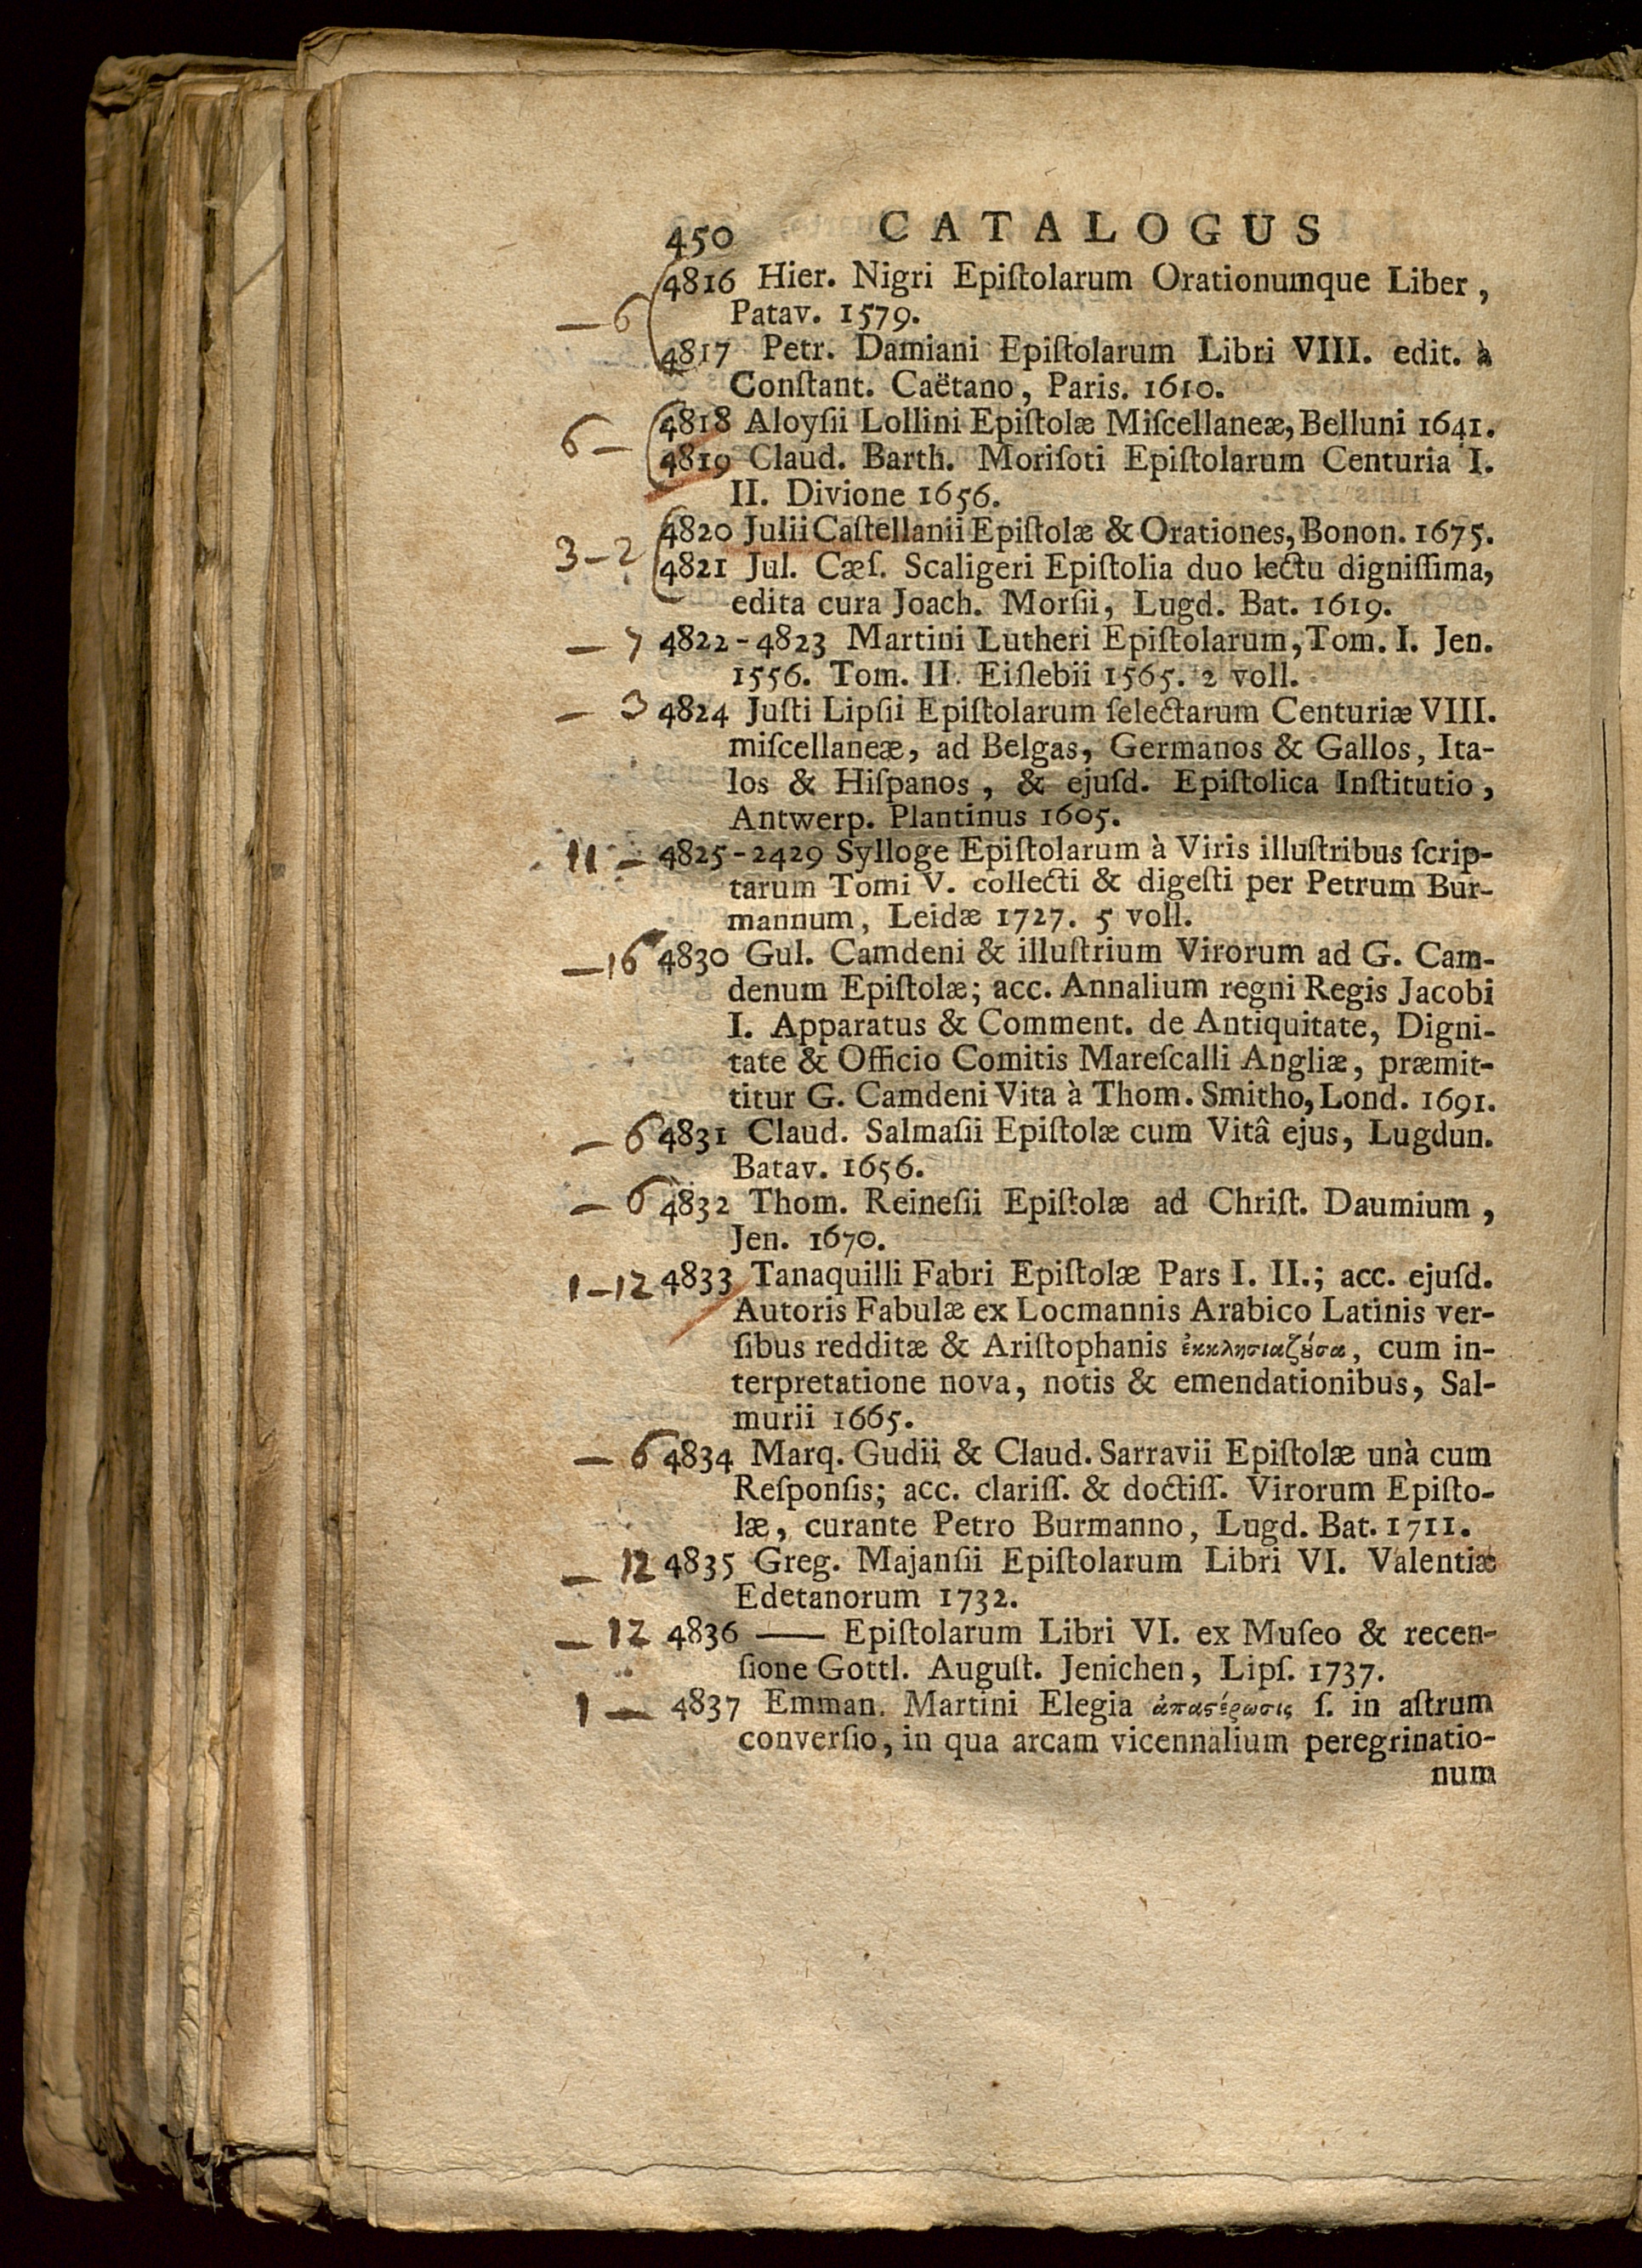 450 CATALOGUS
4816 Hier. Nigri Epiſtolarum Orationumque Liber,
— 6
Patav. 1579.
4817 Petr. Damiani Epiſtolarum Libri VIII. edit. à
Conſtant. Caëtano, Paris. 1610.
4818 Aloyſii Lollini Epiſtolæ Miſcellaneæ, Belluni 1641.
6 —
4819 Claud. Barth. Moriſoti Epiſtolarum Centuria I.
II. Divione 1656.
4820 Julii Caſtellanii Epiſtolæ & Orationes, Bonon. 1675.
3 — 2
4821 Jul. Cæſ. Scaligeri Epiſtolia duo lectu digniſſima,
edita cura Joach. Morſii, Lugd. Bat. 1619.
— 7 4822-4823 Martini Lutheri Epiſtolarum, Tom. I. Jen.
1556. Tom. II. Eiſlebii 1565. 2 voll.
— 3 4824 Juſti Lipſii Epiſtolarum ſelectarum Centuriæ VIII.
miſcellaneæ, ad Belgas, Germanos & Gallos, Ita-
los & Hiſpanos, & ejuſd. Epiſtolica Inſtitutio,
Antwerp. Plantinus 1605.
11 — 4825-2429 Sylloge Epiſtolarum à Viris illuſtribus ſcrip-
tarum Tomi V. collecti & digeſti per Petrum Bur-
mannum, Leidæ 1727. 5 voll.
— 16 4830 Gul. Camdeni & illuſtrium Virorum ad G. Cam-
denum Epiſtolæ; acc. Annalium regni Regis Jacobi
I. Apparatus & Comment. de Antiquitate, Digni-
tate & Officio Comitis Mareſcalli Angliæ, præmit-
titur G. Camdeni Vita à Thom. Smitho, Lond. 1691.
— 6 4831 Claud. Salmaſii Epiſtolæ cum Vitâ ejus, Lugdun.
Batav. 1656.
— 6 4832 Thom. Reineſii Epiſtolæ ad Chriſt. Daumium,
Jen. 1670.
1 — 12 4833 Tanaquilli Fabri Epiſtolæ Pars I. II.; acc. ejuſd.
Autoris Fabulæ ex Locmannis Arabico Latinis ver-
ſibus redditæ & Ariſtophanis ἐκκλησιαζȣ́σα, cum in-
terpretatione nova, notis & emendationibus, Sal-
murii 1665.
— 6 4834 Marq. Gudii & Claud. Sarravii Epiſtolæ unà cum
Reſponſis; acc. clariſſ. & doctiſſ. Virorum Epiſto-
læ, curante Petro Burmanno, Lugd. Bat. 1711.
— 12 4835 Greg. Majanſii Epiſtolarum Libri VI. Valentiæ
Edetanorum 1732.
— 12 4836 —— Epiſtolarum Libri VI. ex Muſeo & recen-
ſione Gottl. Auguſt. Jenichen, Lipſ. 1737.
1 — 4837 Emman. Martini Elegia ἀπαϛέρωσις ſ. in aſtrum
converſio, in qua arcam vicennalium peregrinatio-
num